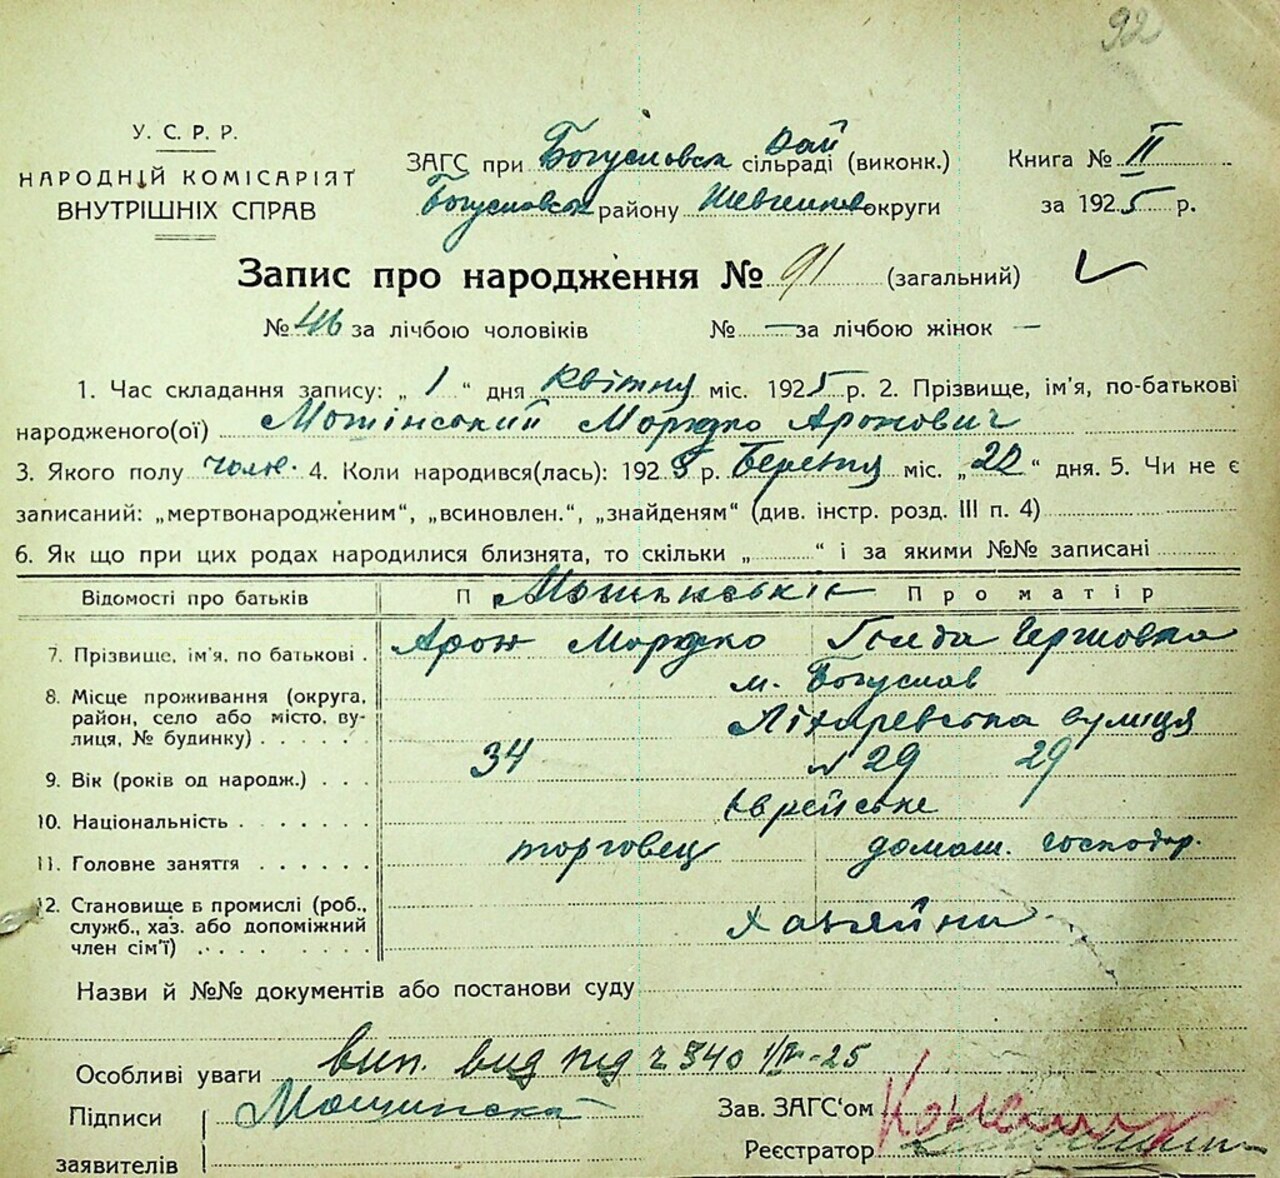 92
У. С. Р. Р.
НАРОДНІЙ КОМІСАРІЯТ
ВНУТРІШНІХ СПРАВ
ЗАГС при Богуславськ Рай сільраді (виконк.)
Богуславськ району Шевченків округи
Книга № II
за 1925 р.
Запис про народження № 91 (загальний)
№ 46 за лічбою чоловіків № — за лічбою жінок —
1. Час складання запису: „ 1 “ дня квітня міс. 1925 р. 2. Прізвище, ім'я, по-батькові
народженого(ої) Мошінський Мордко Аронович
3. Якого полу чолов. 4. Коли народився(лась): 1925 р. Березня міс. „22“ дня. 5. Чи не є
записаний: „мертвонародженим“, „всиновлен.“, „знайденям“ (див. інстр. розд. III п. 4)
6. Як що при цих родах народилися близнята, то скільки „ “ і за якими №№ записані
Відомості про батьків П Мошинські Про матір
7. Прізвище, ім'я, по батькові . Арон Мордко Гольда Гершовна
8. Місце проживання (округа, м. Богуслав
район, село або місто, ву- Ліхаревська вулиця
лиця, № будинку) . . . . . № 29
9. Вік (років од народж.) . . . 34 29
10. Національність . . . . . . Єврейське
11. Головне заняття . . . . . . торговец домаш. господар.
12. Становище в промислі (роб.,
служб., хаз. або допоміжний хазяйни
член сім'ї) . . . . . .
Назви й №№ документів або постанови суду
Особливі уваги вип. вид під ч 340 1/IV-25
Підписи Мошинска
заявителів
Зав. ЗАГС'ом
Реєстратор